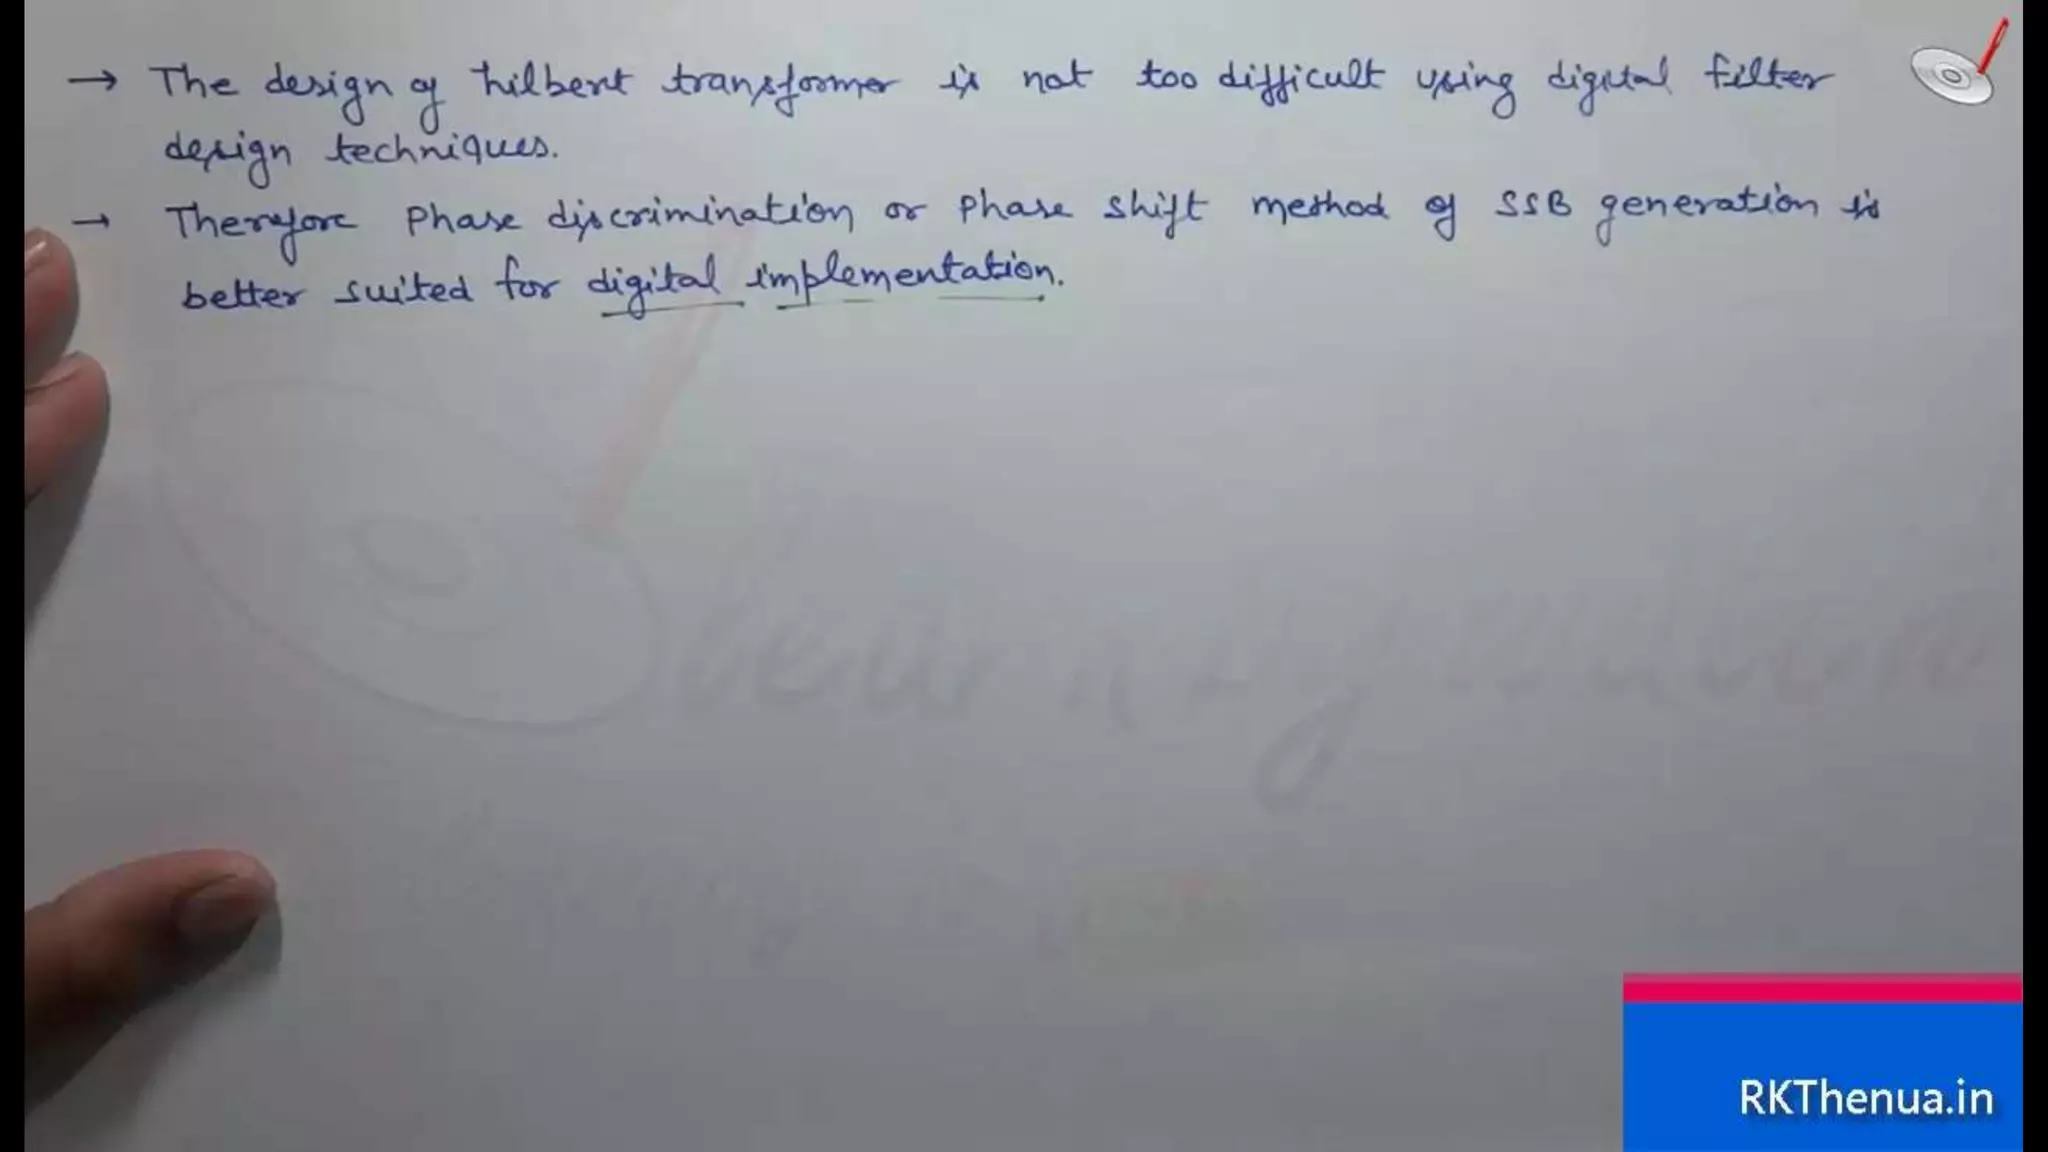 → The design of hilbert transformer is not too difficult using digital filter
design techniques.
→ Therefore Phase discrimination or Phase shift method of SSB generation is
better suited for digital implementation.
RKThenua.in